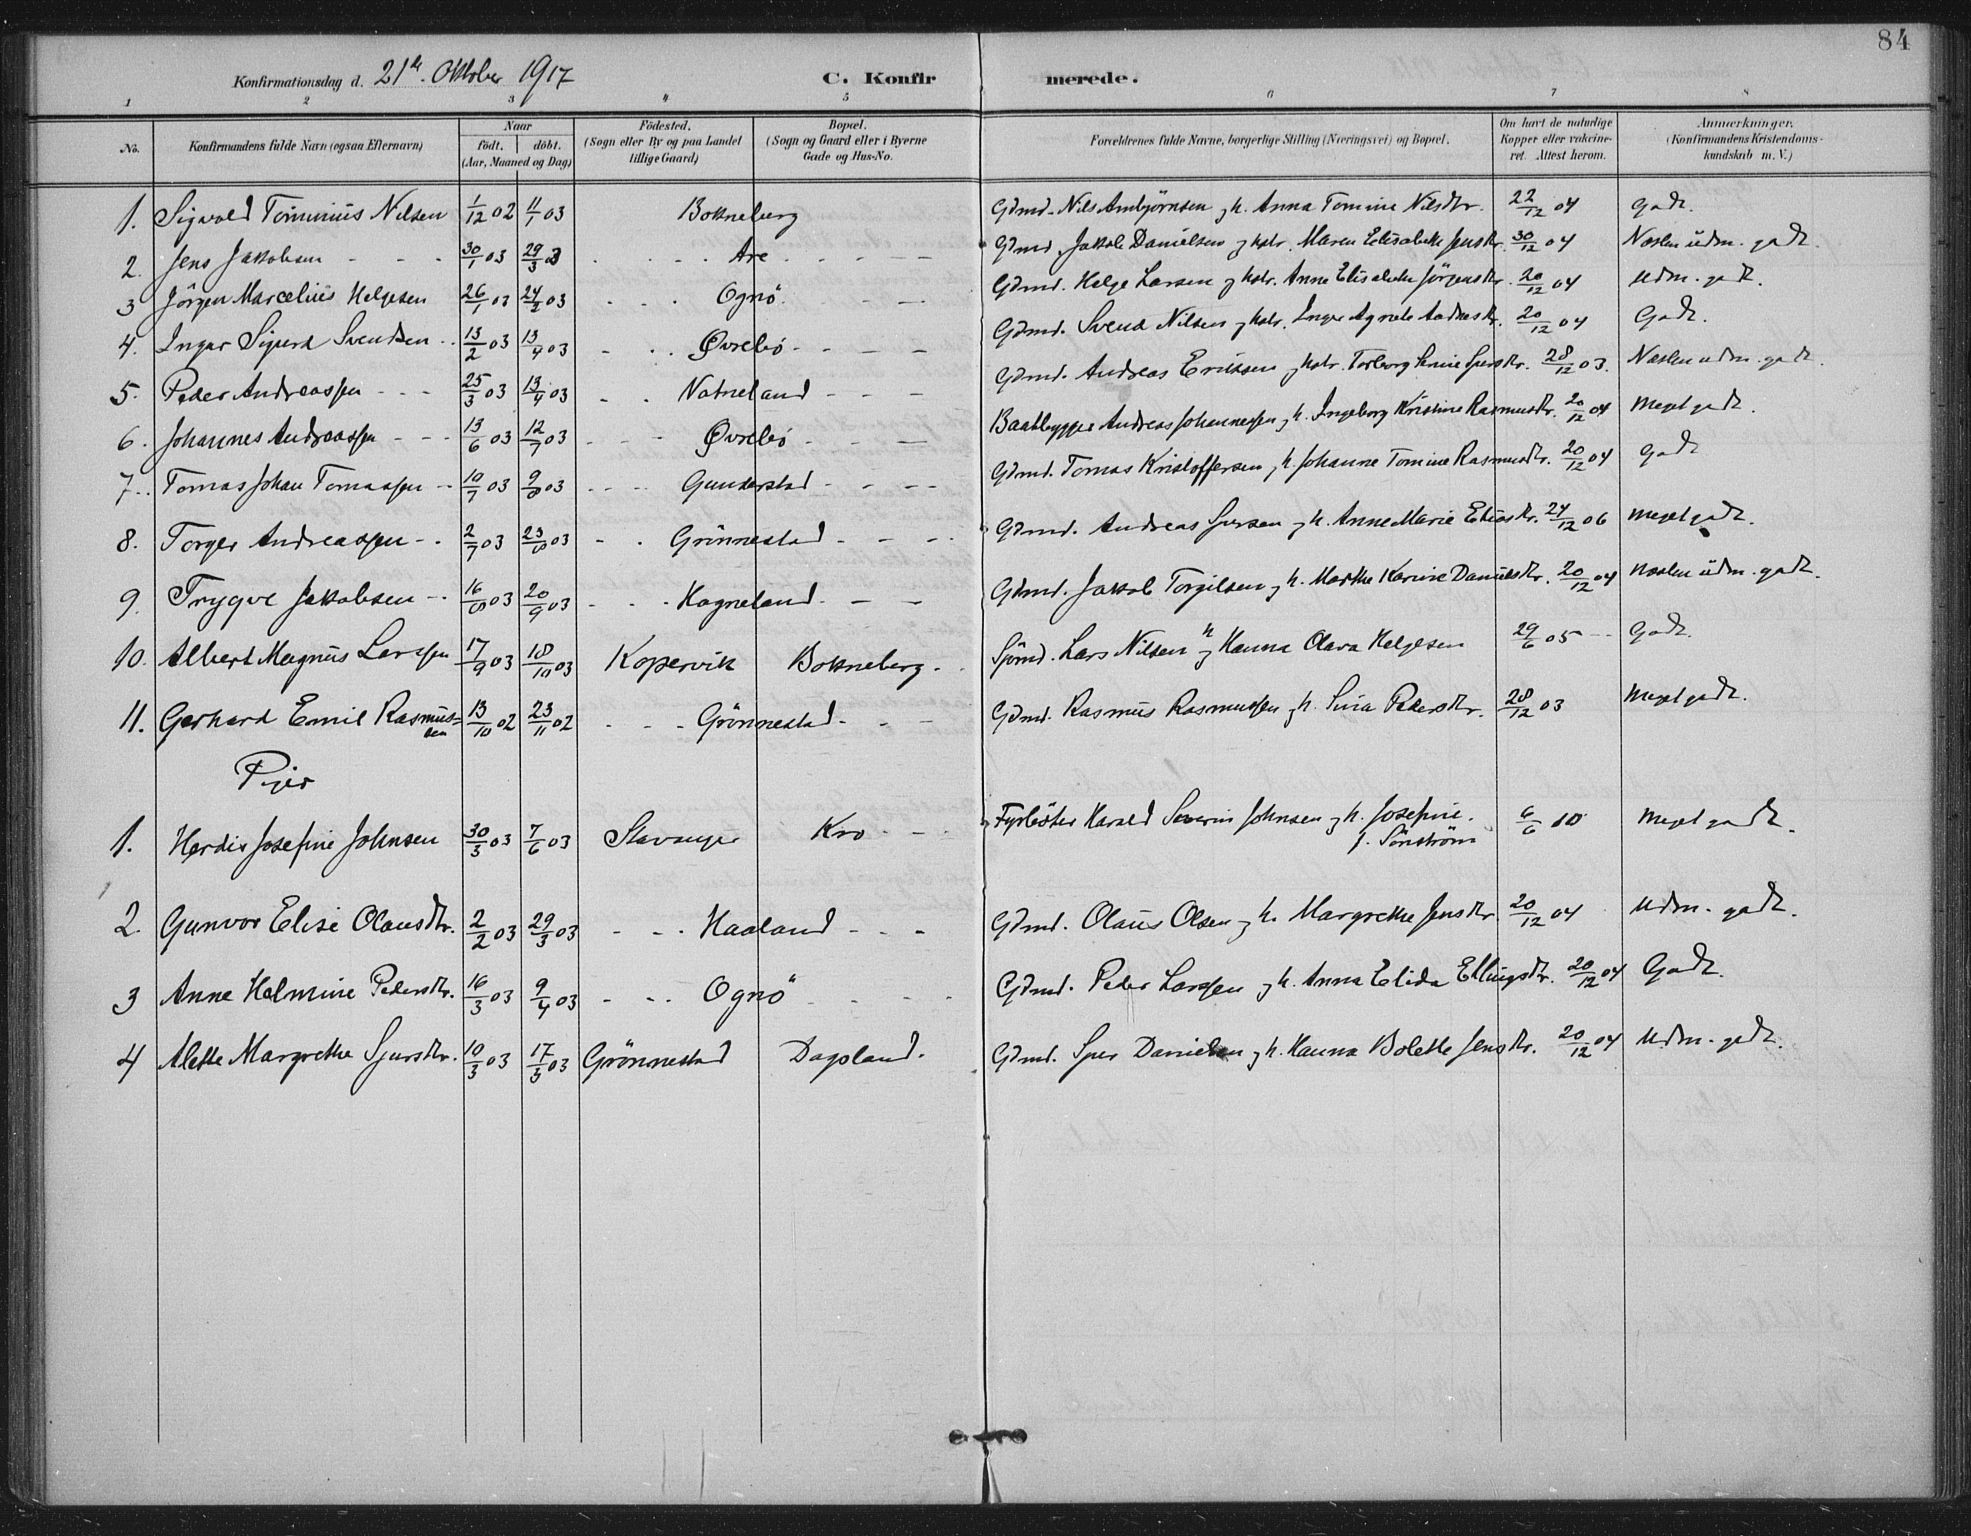 84
Konfirmationsdag d. 21de Oktober 1917 C. Konfir merede.
1 2 3 4 5 6 7 8
No. Konfirmandens fulde Navn (ogsaa Efternavn) Naar født. døbt. (Aar, Maaned og Dag) Fødested. (Sogn eller By og paa Landet tillige Gaard) Bopæl. (Sogn og Gaard eller i Byerne Gade og Hus-No. Forældrenes fulde Navne, borgerlige Stilling (Næringsvei) og Bopæl. Om havt de naturlige Kopper eller vakcineret. Attest herom. Anmærkninger. (Konfirmandens Kristendomskundskab m. V.)
1. Sigvald Tominius Nilsen 1/12 02 11/1 03 Bokneberg Gdmd. Nils Ambjörnsen og h. Anna Tomine Nilsdtr. 22/12 04 Godt.
2. Jens Jakobsen - - - 30/1 03 29/3 03 - - - - Are - - - - Gdmd. Jakob Danielsen og hstr. Maren Elisabeth Jensdtr. 30/12 04 Næsten udm. godt.
3 Jörgen Marcelius Helgesen 26/1 03 24/2 03 - - - Ognö - - - Gdmd. Helge Larsen og hstr. Anne Elisabeth Jörgensdtr. 20/12 04 Udm. godt.
4. Ingar Sigurd Svendsen - - 13/2 03 13/4 03 - - - Øvrebö - - - - Gdmd. Svend Nilsen og hstr. Inger Agnete Aadnesdtr. 20/12 04 Godt.
5. Peder Andreassen - - - 25/3 03 13/4 03 - - Vatneland - - - Gdmd. Andreas Eriksen og hstr. Torborg Serine Sjursdtr. 28/12 03. Næsten udm. godt.
6. Johannes Andreassen - - - 13/6 03 12/7 03 - - - Øvrebö - - - Baatbygger Andreas Johannessen og h. Ingeborg Kristine Rasmusdtr. 20/12 04 Meget godt.
7. Tomas Johan Tomassen - - 10/7 03 9/8 03 - - - Gunderstad - - - - Gdmd. Tomas Kristoffersen og h. Johanne Tomine Rasmusdtr. 20/12 04 Godt
8. Torger Andreassen - - 2/7 03 23/8 03 - - Grönnestad - - - Gdmd. Andreas Sjursen og h. Anne Marie Eliasdtr. 24/12 06 Meget godt.
9. Trygve Jakobsen - - 16/8 03 20/9 03 - - - Hogneland - - - Gdmd. Jakob Torgilsen og h. Marthe Karine Danielsdtr. 20/12 04 Næsten udm. godt.
10. Albert Magnus Larssen 17/9 03 18/10 03 Kopervik Bokneberg - - Sjömd. Lars Nilsen og h. Hanna Olava Helgesen 29/6 05 - - Godt.
11. Gerhard Emil Rasmussen 13/10 02 23/11 02 - - - Grönnestad - - - Gdmd. Rasmus Rasmussen og h. Sina Pedersdtr. 28/12 03 Meget godt.
Piger
1. Herdis Josefine Johnsen 30/3 03 7/6 03 Stavanger Kro - - - Fyrbøter Harald Severin Johnsen og h. Josefine f. Sönström 6/6 10 Meget godt.
2. Gunvor Elise Olausdtr. 2/2 03 29/3 03 - - - Haaland - - - Gdmd. Olaus Olsen og h. Margrethe Jensdtr 20/12 04 Udm. godt.
3 Anne Helmine Pedersdtr. 16/3 03 9/4 03 - - - Ognö - - - - Gdmd. Peder Larssen og h. Anna Elida Ellingsdtr. 20/12 04 Godt.
4 Alette Margrethe Sjursdtr. 10/3 03 17/5 03 Grönnestad Dagsland. Gdmd. Sjur Danielsen og h. Hanna Bolette Jensdtr. 20/12 04 Udm. godt.